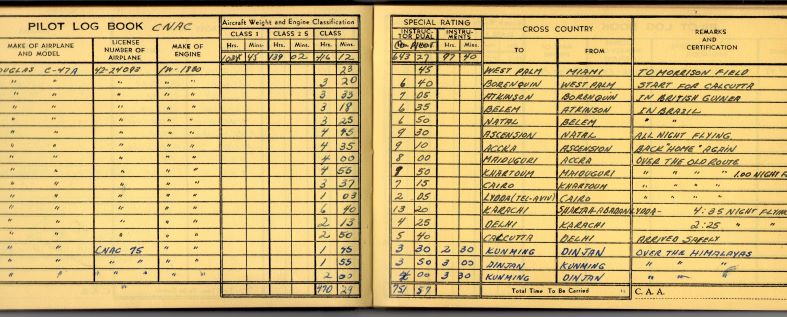 PILOT LOG BOOK CNAC
Aircraft Weight and Engine Classification
CLASS 1 CLASS 2 S CLASS
MAKE OF AIRPLANE AND MODEL LICENSE NUMBER OF AIRPLANE MAKE OF ENGINE Hrs. Mins. Hrs. Mins. Hrs. Mins.
1034 45 139 02 116 12
DOUGLAS C-47A 42-24093 23
" " " " " 3 20
" " " " " 3 35
" " " " " 3 18
" " " " " 3 25
" " " " " 4 45
" " " " " 4 35
" " " " " 4 00
" " " " " 4 55
" " " " " 3 37
" " " " " 1 03
" " " " " 6 40
" " " " " 2 13
" " " " " 2 50
" " CNAC 75 " " 1 45
" " " " " " 1 55
" " " " " " 2 00
470 29
SPECIAL RATING CROSS COUNTRY REMARKS AND CERTIFICATION
INSTRUCTOR DUAL INSTRUMENTS
TO FROM
Hrs. Mins.
643 27 97 40
45 WEST PALM MIAMI TO MORRISON FIELD
6 40 BORENQUIN WEST PALM START FOR CALCUTTA
7 05 ATKINSON BORENQUIN IN BRITISH GUINEA
6 35 BELEM ATKINSON IN BRAZIL
6 50 NATAL BELEM " "
9 30 ASCENSION NATAL ALL NIGHT FLYING
9 10 ACCRA ASCENSION BACK "HOME" AGAIN
8 00 MAIDUGURI ACCRA OVER THE OLD ROUTE
9 50 KHARTOUM MAIDUGURI " " " " 1.00 NIGHT F
7 15 CAIRO KHARTOUM " " " "
2 05 LYDDA (TEL-AVIV) CAIRO " " " "
13 20 KARACHI LYDDA- 4:35 NIGHT FLYING
4 25 DELHI KARACHI 2:25 " "
5 40 CALCUTTA DELHI ARRIVED SAFELY
3 30 2 30 KUNMING DINJAN OVER THE HIMALAYAS
3 50 3 00 DINJAN KUNMING " "
4 00 3 30 KUNMING DINJAN " " "
751 57 Total Time To Be Carried C. A. A.